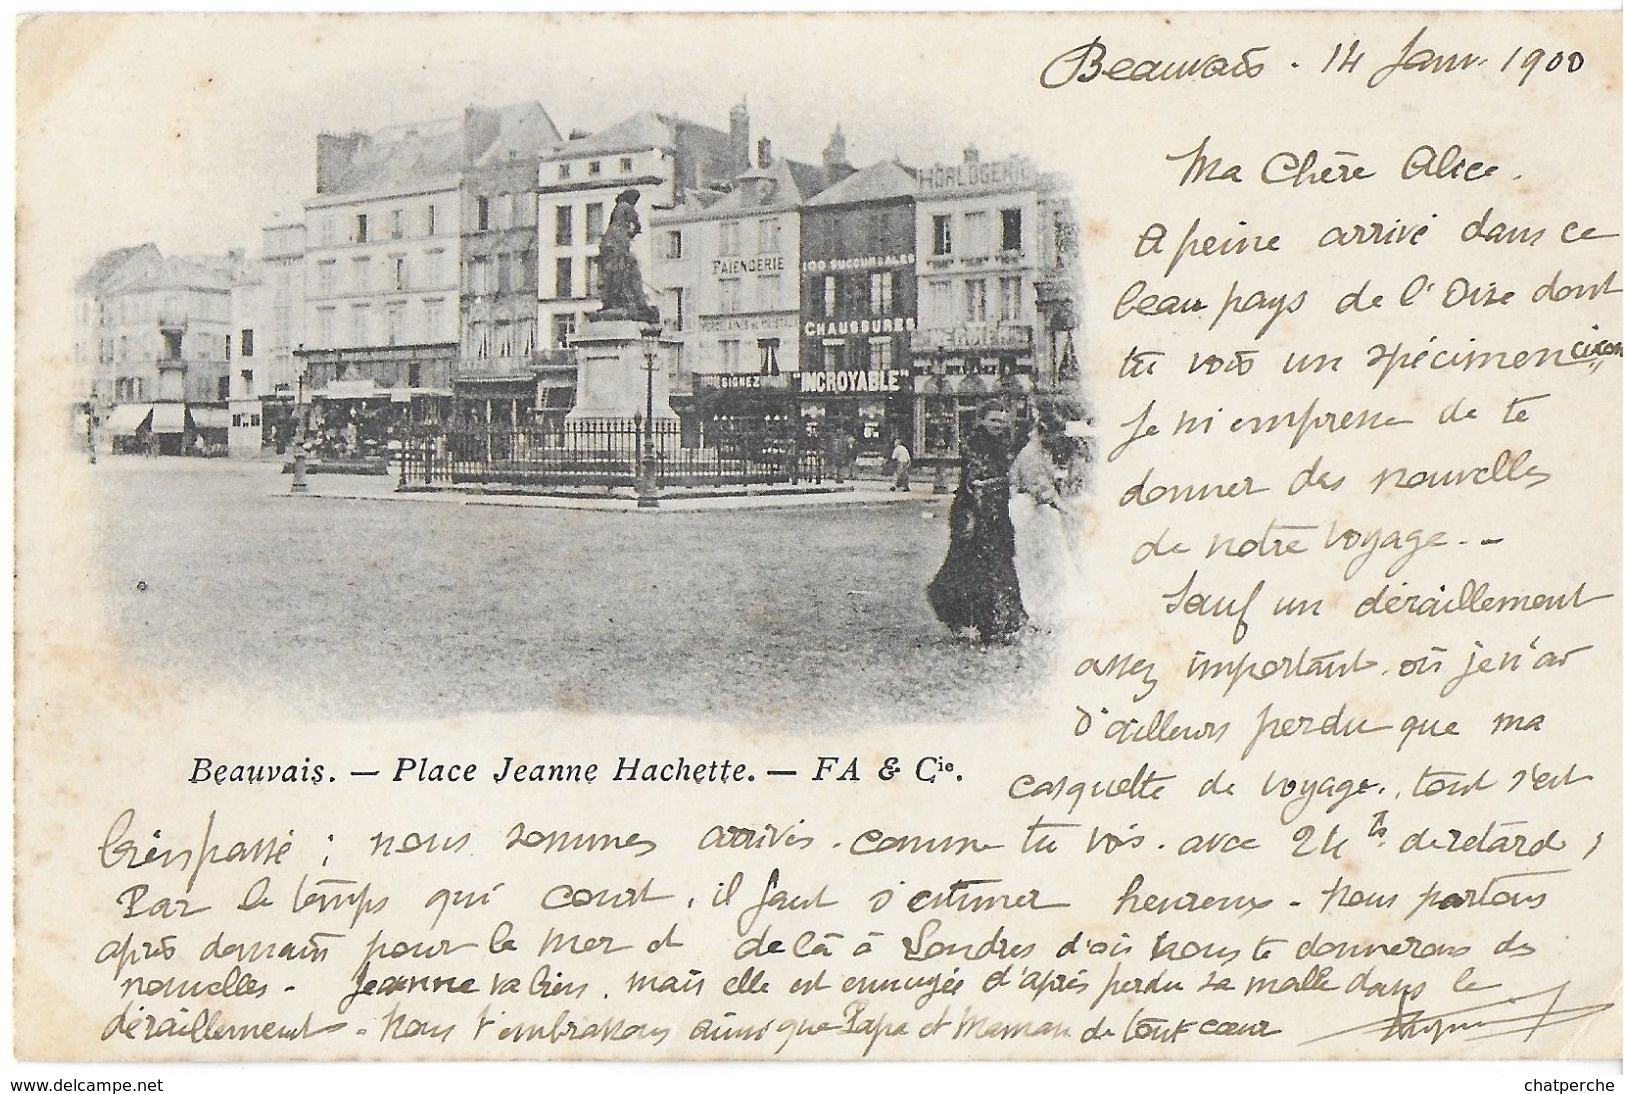 Beauvais. 14 Janv. 1900
Ma Chère Alice.
A peine arrivé dans ce
beau pays de l'Oise dont
tu vois un spécimen ci con
Je m'empresse de te
donner des nouvelles
de notre voyage. -
Sauf un déraillement
assez important. où je n'ai
d'ailleurs perdu que ma
casquette de voyage., tout s'est
bien passé ; nous sommes arrivés. comme tu vois. avec 24 hs. de retard,
Par le temps qui court, il faut s'estimer heureux. Nous partons
après demain pour la mer et de là à Londres d'où nous te donnerons des
nouvelles - Jeanne va bien. mais elle est ennuyée d'après perdu sa malle dans le
déraillement - Nous t'embrassons ainsi que Papa et Maman de tout cœur
HORLOGERIE
FAIENCERIE
100 SUCCURSALES
PORCELAINES ET CRISTAUX
CHAUSSURES
DESIGNEZ
"INCROYABLE"
Beauvais. — Place Jeanne Hachette. — FA & Cie.
www.delcampe.net
chatperche